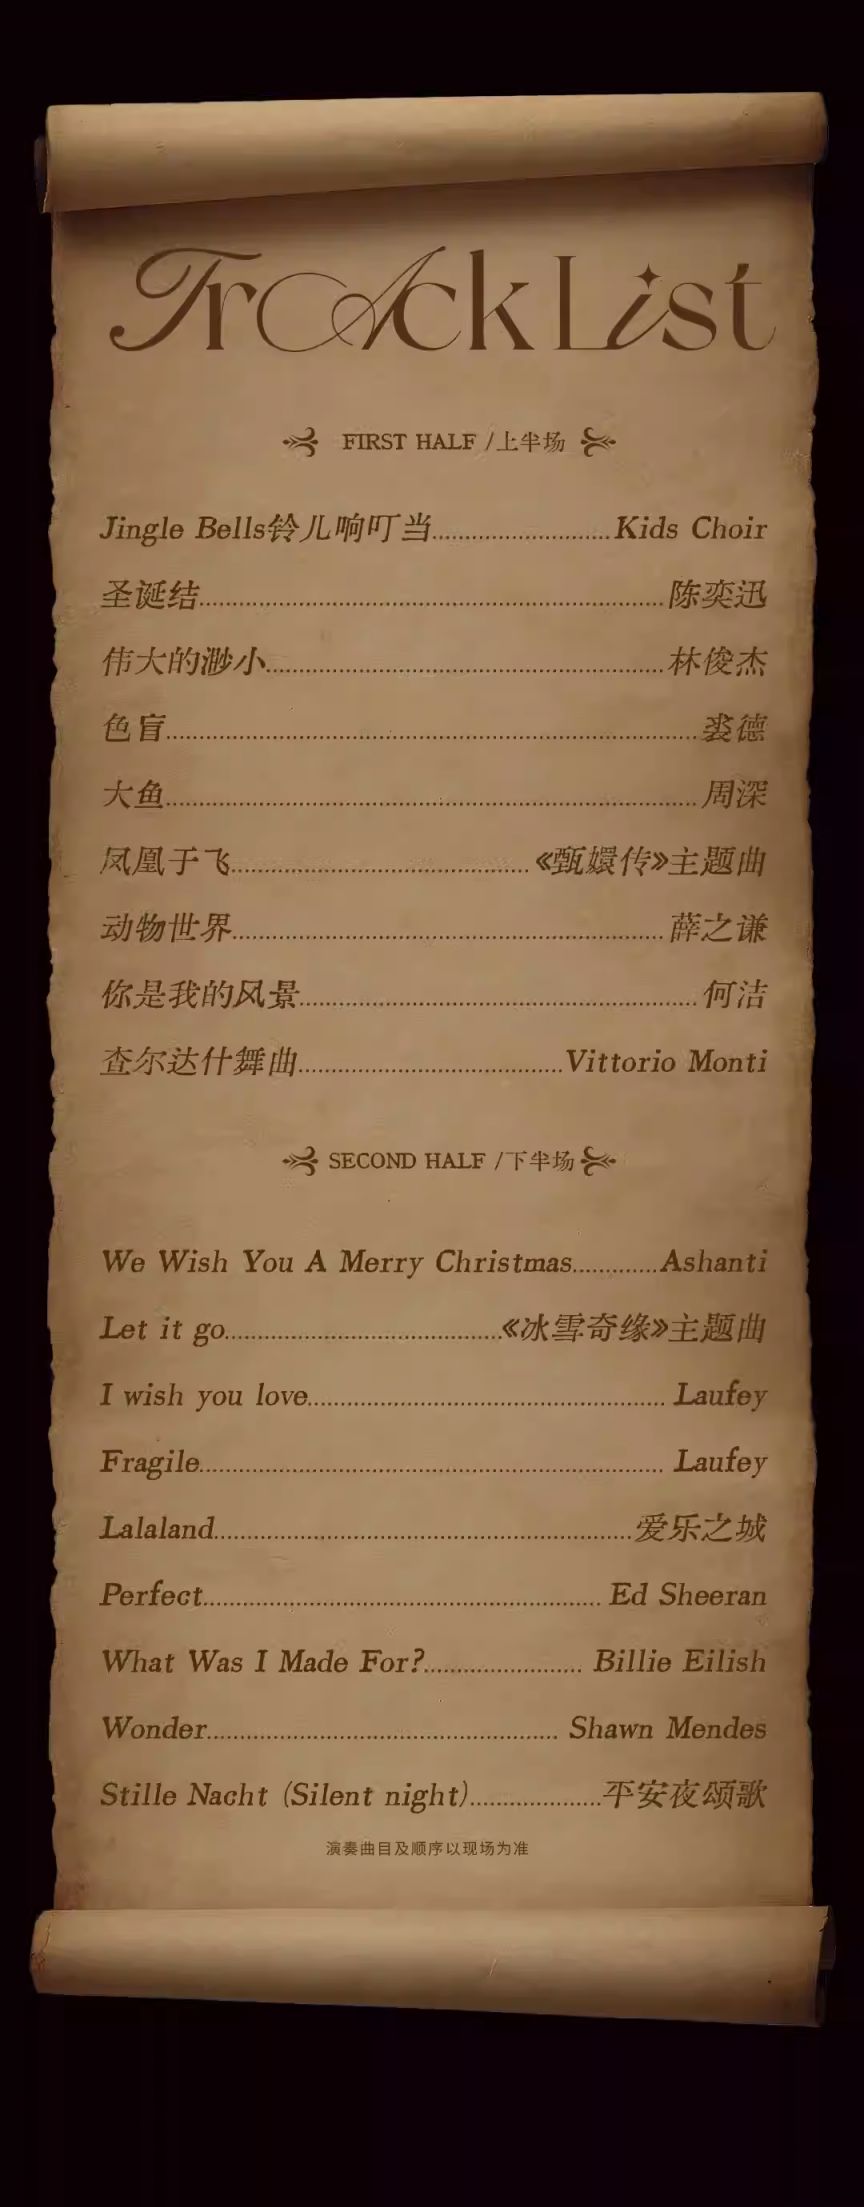 TrAck List
FIRST HALF /上半场
Jingle Bells铃儿响叮当..........................Kids Choir
圣诞结....................................................................陈奕迅
伟大的渺小..........................................................林俊杰
色盲..............................................................................裘德
大鱼..............................................................................周深
凤凰于飞............................................《甄嬛传》主题曲
动物世界...............................................................薛之谦
你是我的风景..........................................................何洁
查尔达什舞曲......................................Vittorio Monti
SECOND HALF /下半场
We Wish You A Merry Christmas.............Ashanti
Let it go.........................................《冰雪奇缘》主题曲
I wish you love.................................................... Laufey
Fragile.................................................................... Laufey
Lalaland.............................................................爱乐之城
Perfect.......................................................... Ed Sheeran
What Was I Made For?....................... Billie Eilish
Wonder.................................................... Shawn Mendes
Stille Nacht (Silent night)...................平安夜颂歌
演奏曲目及顺序以现场为准